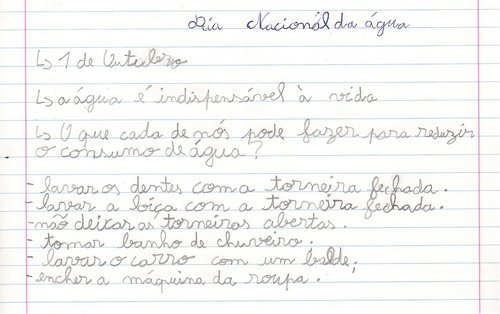 Dia Nacional da água
↳ 1 de Outubro
↳ a água é indispensável à vida
↳ O que cada de nós pode fazer para reduzir
o consumo de água?
- lavar os dentes com a torneira fechada.
- lavar a loiça com a torneira fechada.
- não deixar as torneiras abertas.
- tomar banho de chuveiro.
- lavar o carro com um balde;
- encher a máquina da roupa.